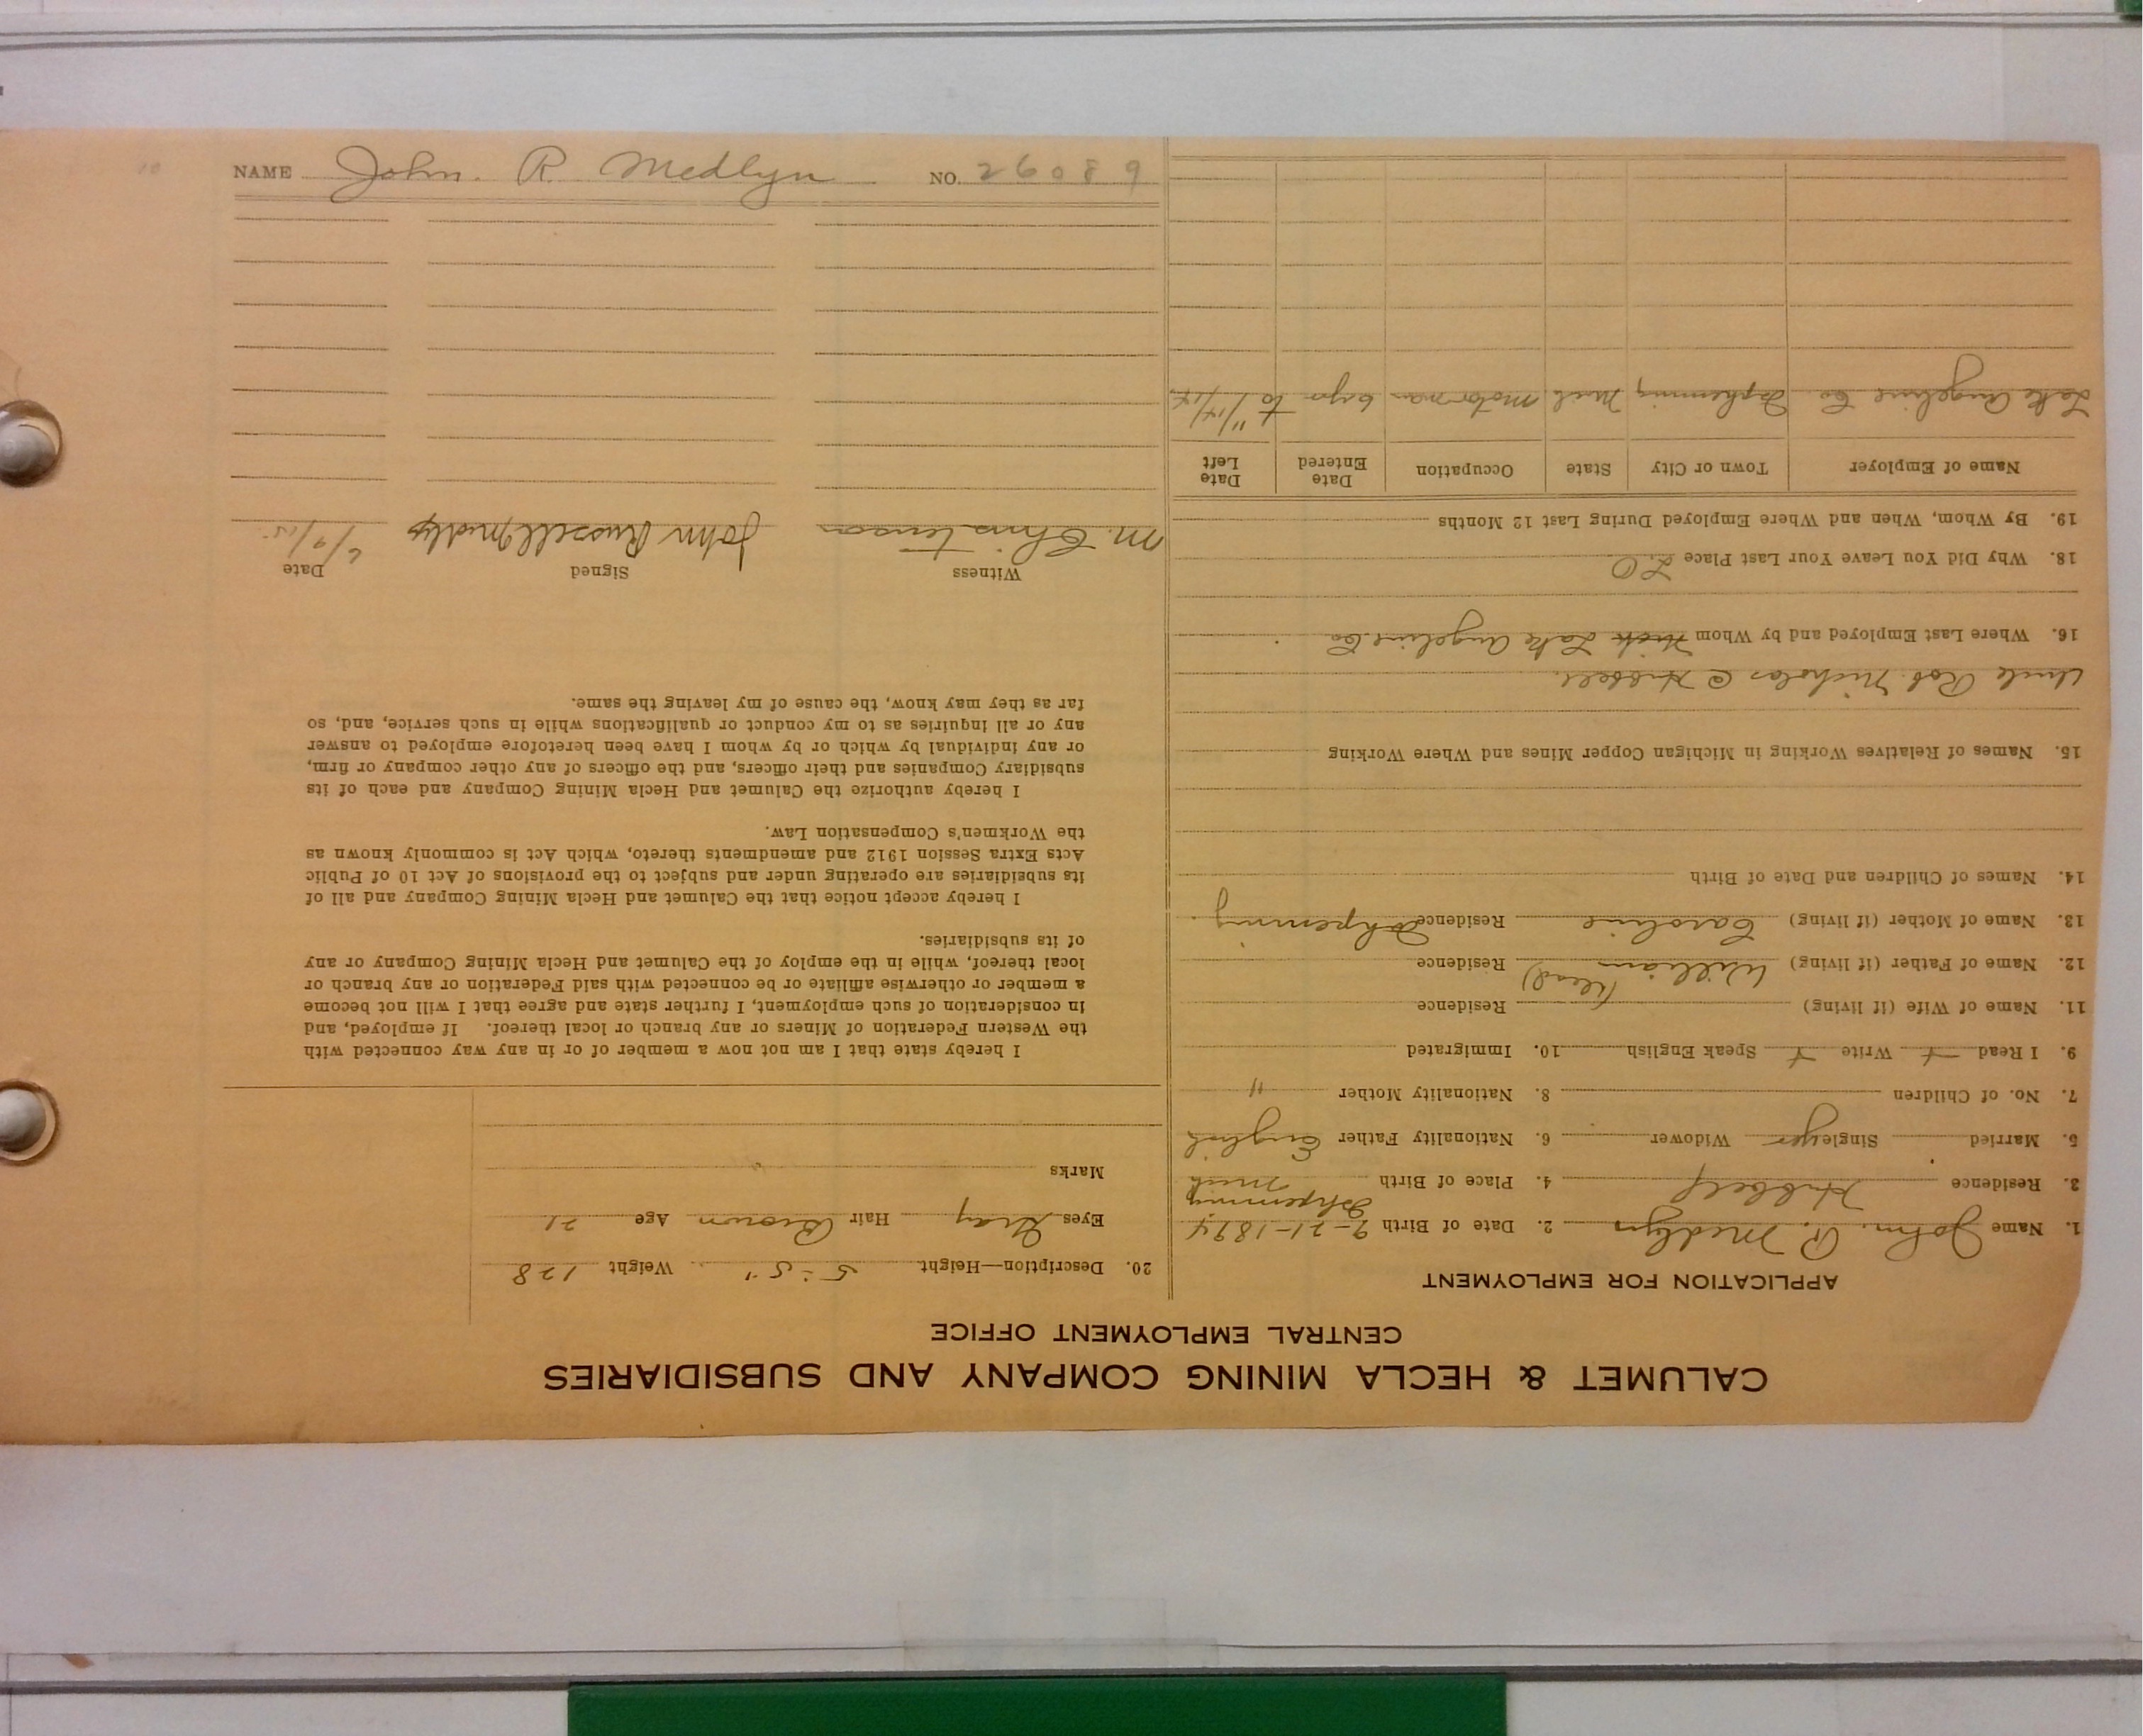 CALUMET & HECLA MINING COMPANY AND SUBSIDIARIES
CENTRAL EMPLOYMENT OFFICE
APPLICATION FOR EMPLOYMENT
1. Name John. R. Medlyn 2. Date of Birth 9-21-1894
3. Residence Hubbell 4. Place of Birth Ishpeming Mich
5. Married Single yes Widower 6. Nationality Father English
7. No. of Children 8. Nationality Mother "
9. I Read + Write + Speak English 10. Immigrated
11. Name of Wife (if living) Residence
12. Name of Father (if living) William (dead) Residence
13. Name of Mother (if living) Caroline Residence Ishpeming
14. Names of Children and Date of Birth
15. Names of Relatives Working in Michigan Copper Mines and Where Working
Uncle Rob. Nicholas @ Hubbell.
16. Where Last Employed and by Whom Lake Angeline Co
18. Why Did You Leave Your Last Place L.O
19. By Whom, When and Where Employed During Last 12 Months
Name of Employer Town or City State Occupation Date Entered Date Left
Lake Angeline Co. Ishpeming Mich Motorman 6 yrs to 11/14/14
20. Description—Height 5'-5" Weight 128
Eyes Gray Hair Brown Age 21
Marks
I hereby state that I am not now a member of or in any way connected with
the Western Federation of Miners or any branch or local thereof. If employed, and
in consideration of such employment, I further state and agree that I will not become
a member or otherwise affiliate or be connected with said Federation or any branch or
local thereof, while in the employ of the Calumet and Hecla Mining Company or any
of its subsidiaries.
I hereby accept notice that the Calumet and Hecla Mining Company and all of
its subsidiaries are operating under and subject to the provisions of Act 10 of Public
Acts Extra Session 1912 and amendments thereto, which Act is commonly known as
the Workmen's Compensation Law.
I hereby authorize the Calumet and Hecla Mining Company and each of its
subsidiary Companies and their officers, and the officers of any other company or firm,
or any individual by which or by whom I have been heretofore employed to answer
any or all inquiries as to my conduct or qualifications while in such service, and, so
far as they may know, the cause of my leaving the same.
Witness Signed Date
M. Christenson John Russell Medlyn 6/9/15
NAME John. R. Medlyn NO. 26089